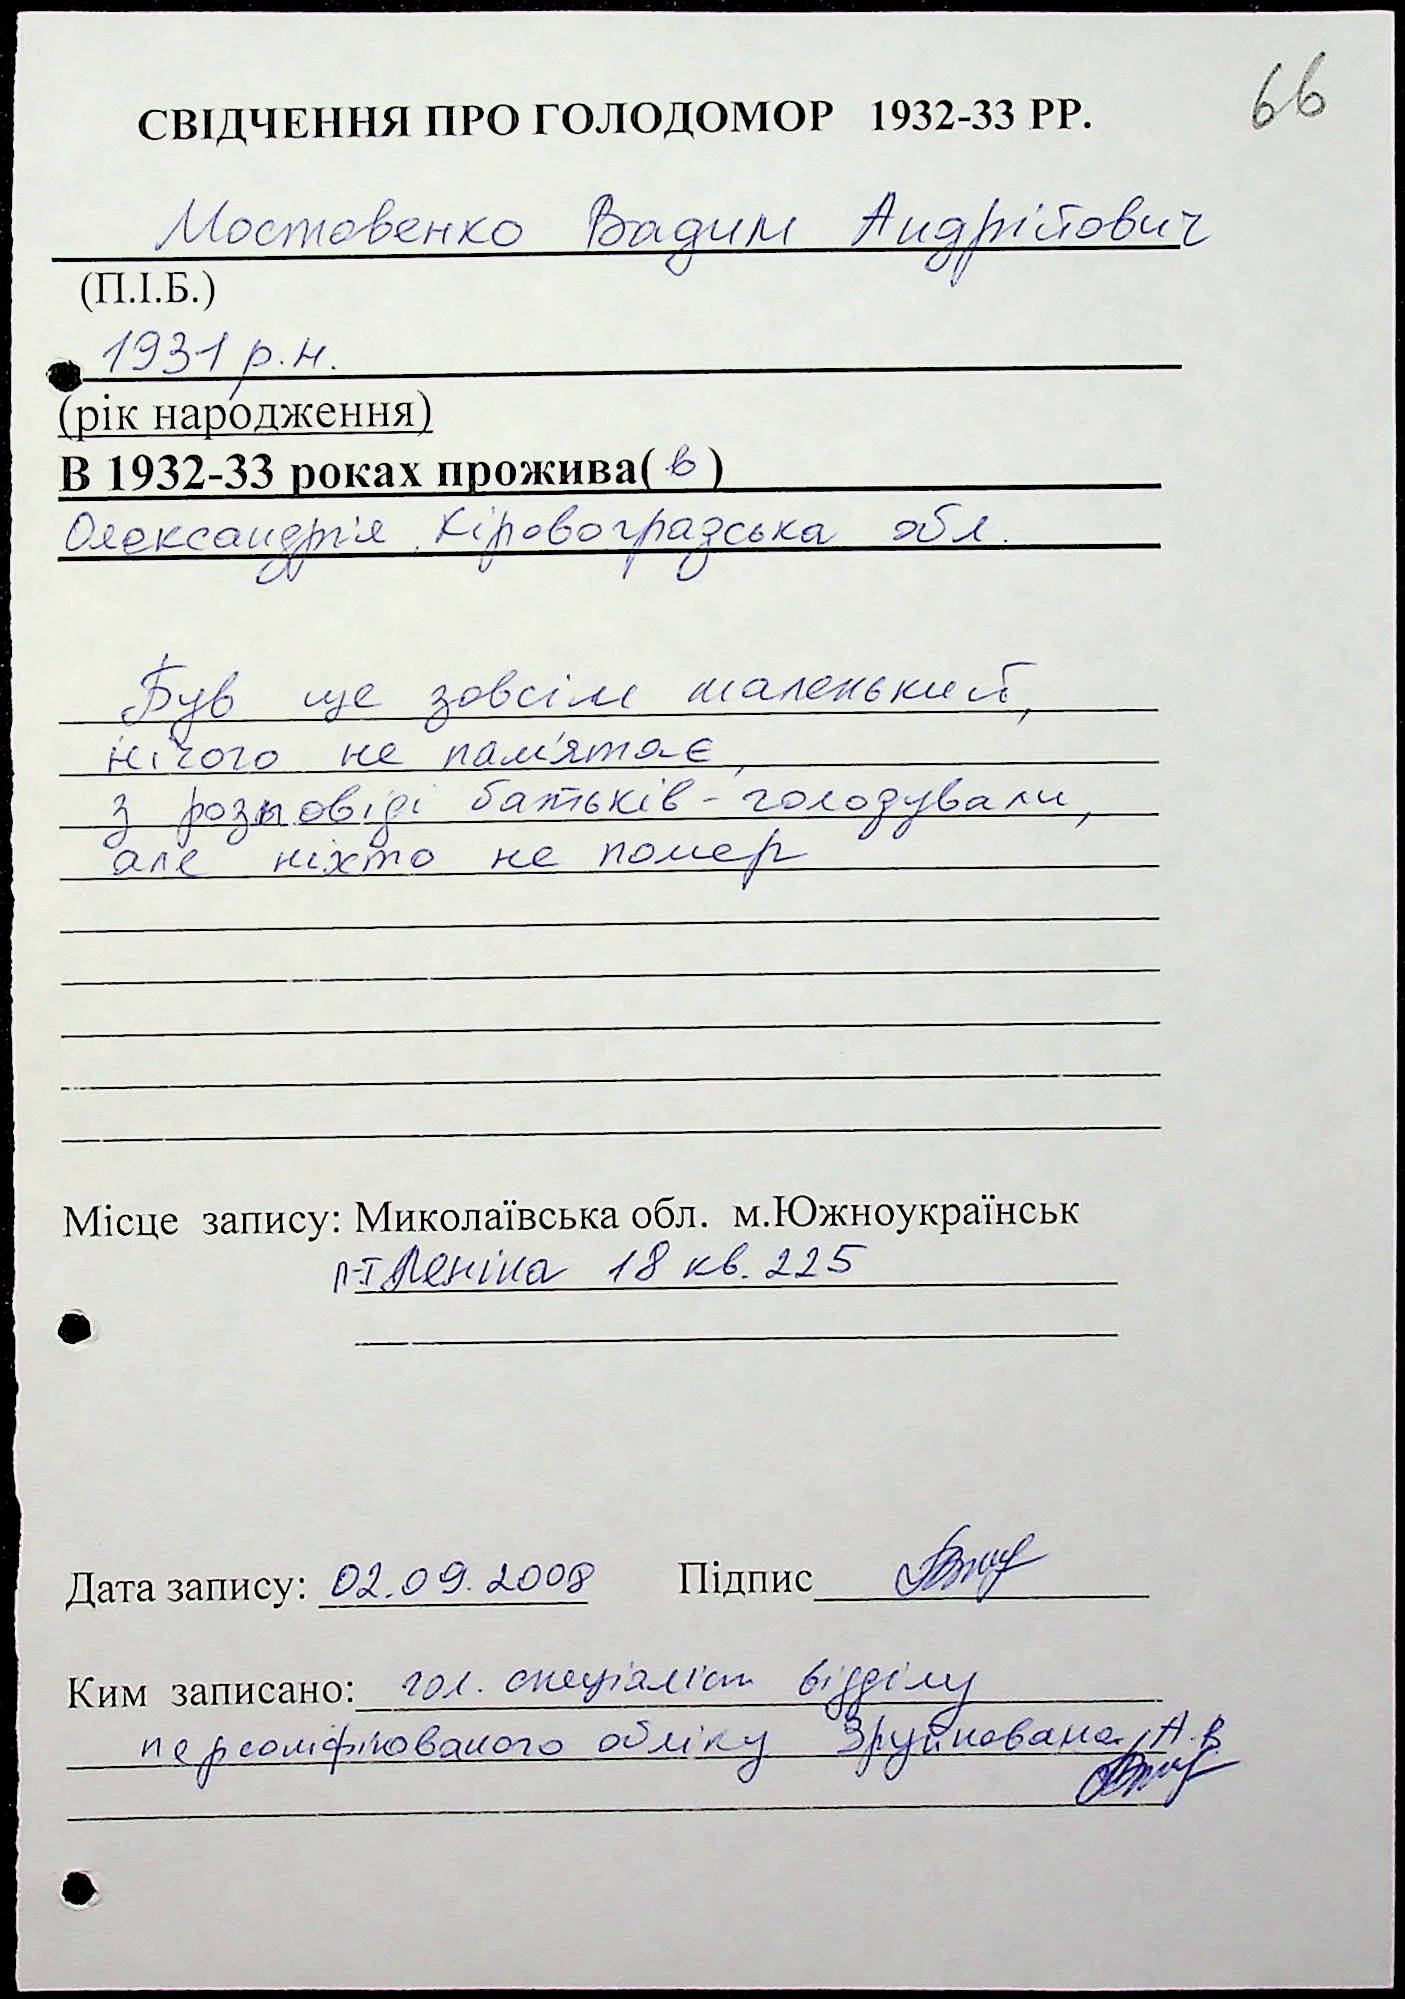 66
СВІДЧЕННЯ ПРО ГОЛОДОМОР 1932-33 РР.
Мостовенко Вадим Андрійович
(П.І.Б.)
1931 р.н.
(рік народження)
В 1932-33 роках прожива( в )
Олександрія, Кіровоградська обл.
Був ще зовсім маленький,
нічого не пам'ятає,
з розповіді батьків - голодували,
але ніхто не помер
Місце запису: Миколаївська обл. м.Южноукраїнськ
п-т Леніна 18 кв. 225
Дата запису: 02.09.2008 Підпис
Ким записано: гол. спеціаліст відділу
персоніфікованого обліку Зруйнована А.В.